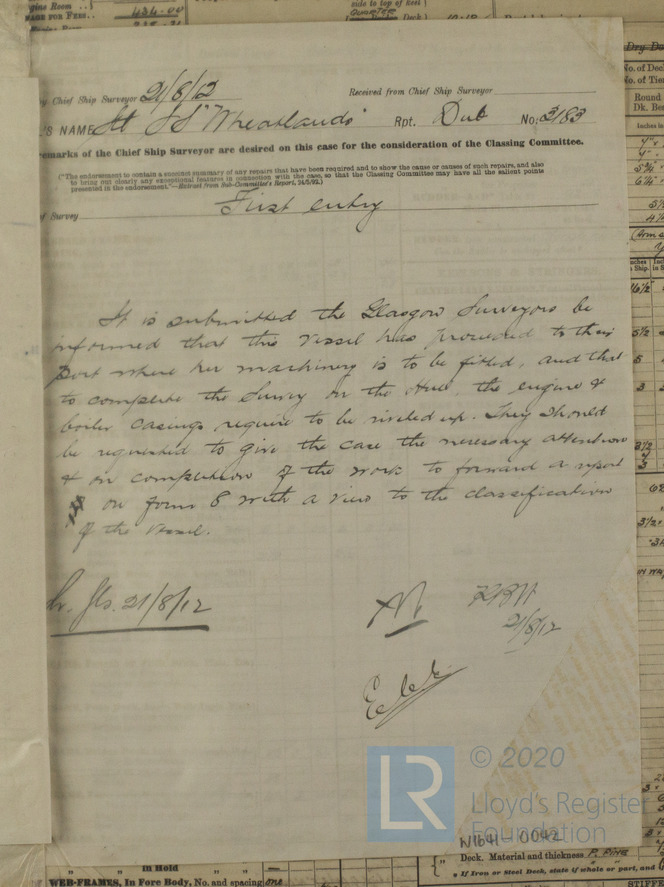 gine Room
434-00
side to top of keel
QUARTER Deck
AGE FOR FEES
Dry Du
No. of Dec
No. of Tie
Round
Dk. Bea
Inches in
y Chief Ship Surveyor 21/8/12 Received from Chief Ship Surveyor
'S NAME St SS "Wheatlands" Rpt. Dub No. 3183
emarks of the Chief Ship Surveyor are desired on this case for the consideration of the Classing Committee.
("The endorsement to contain a succinct summary of any repairs that have been required and to show the cause or causes of such repairs, and also
to bring out clearly any exceptional features in connection with the case, so that the Classing Committee may have all the salient points
presented in the endorsement."—Extract from Sub-Committee's Report, 24/5/92.)
of Survey First entry
It is submitted the Glasgow Surveyors be
informed that this vessel has proceeded to their
port where her machinery is to be fitted, and that
to complete the Survey on the Hull, the engine &
boiler casings require to be riveted up. They should
be requested to give the case the necessary attention
& on completion of the work to forward a report
on form 8 with a view to the classification
of the vessel.
Gls. 21/8/12
21/8/12
LR
© 2020
Lloyd's Register
Foundation
W1641-0042
in Hold
WEB-FRAMES, In Fore Body, No. and spacing one
Deck. Material and thickness P. Pine
If Iron or Steel Deck, state if whole or part, and
STIFFE